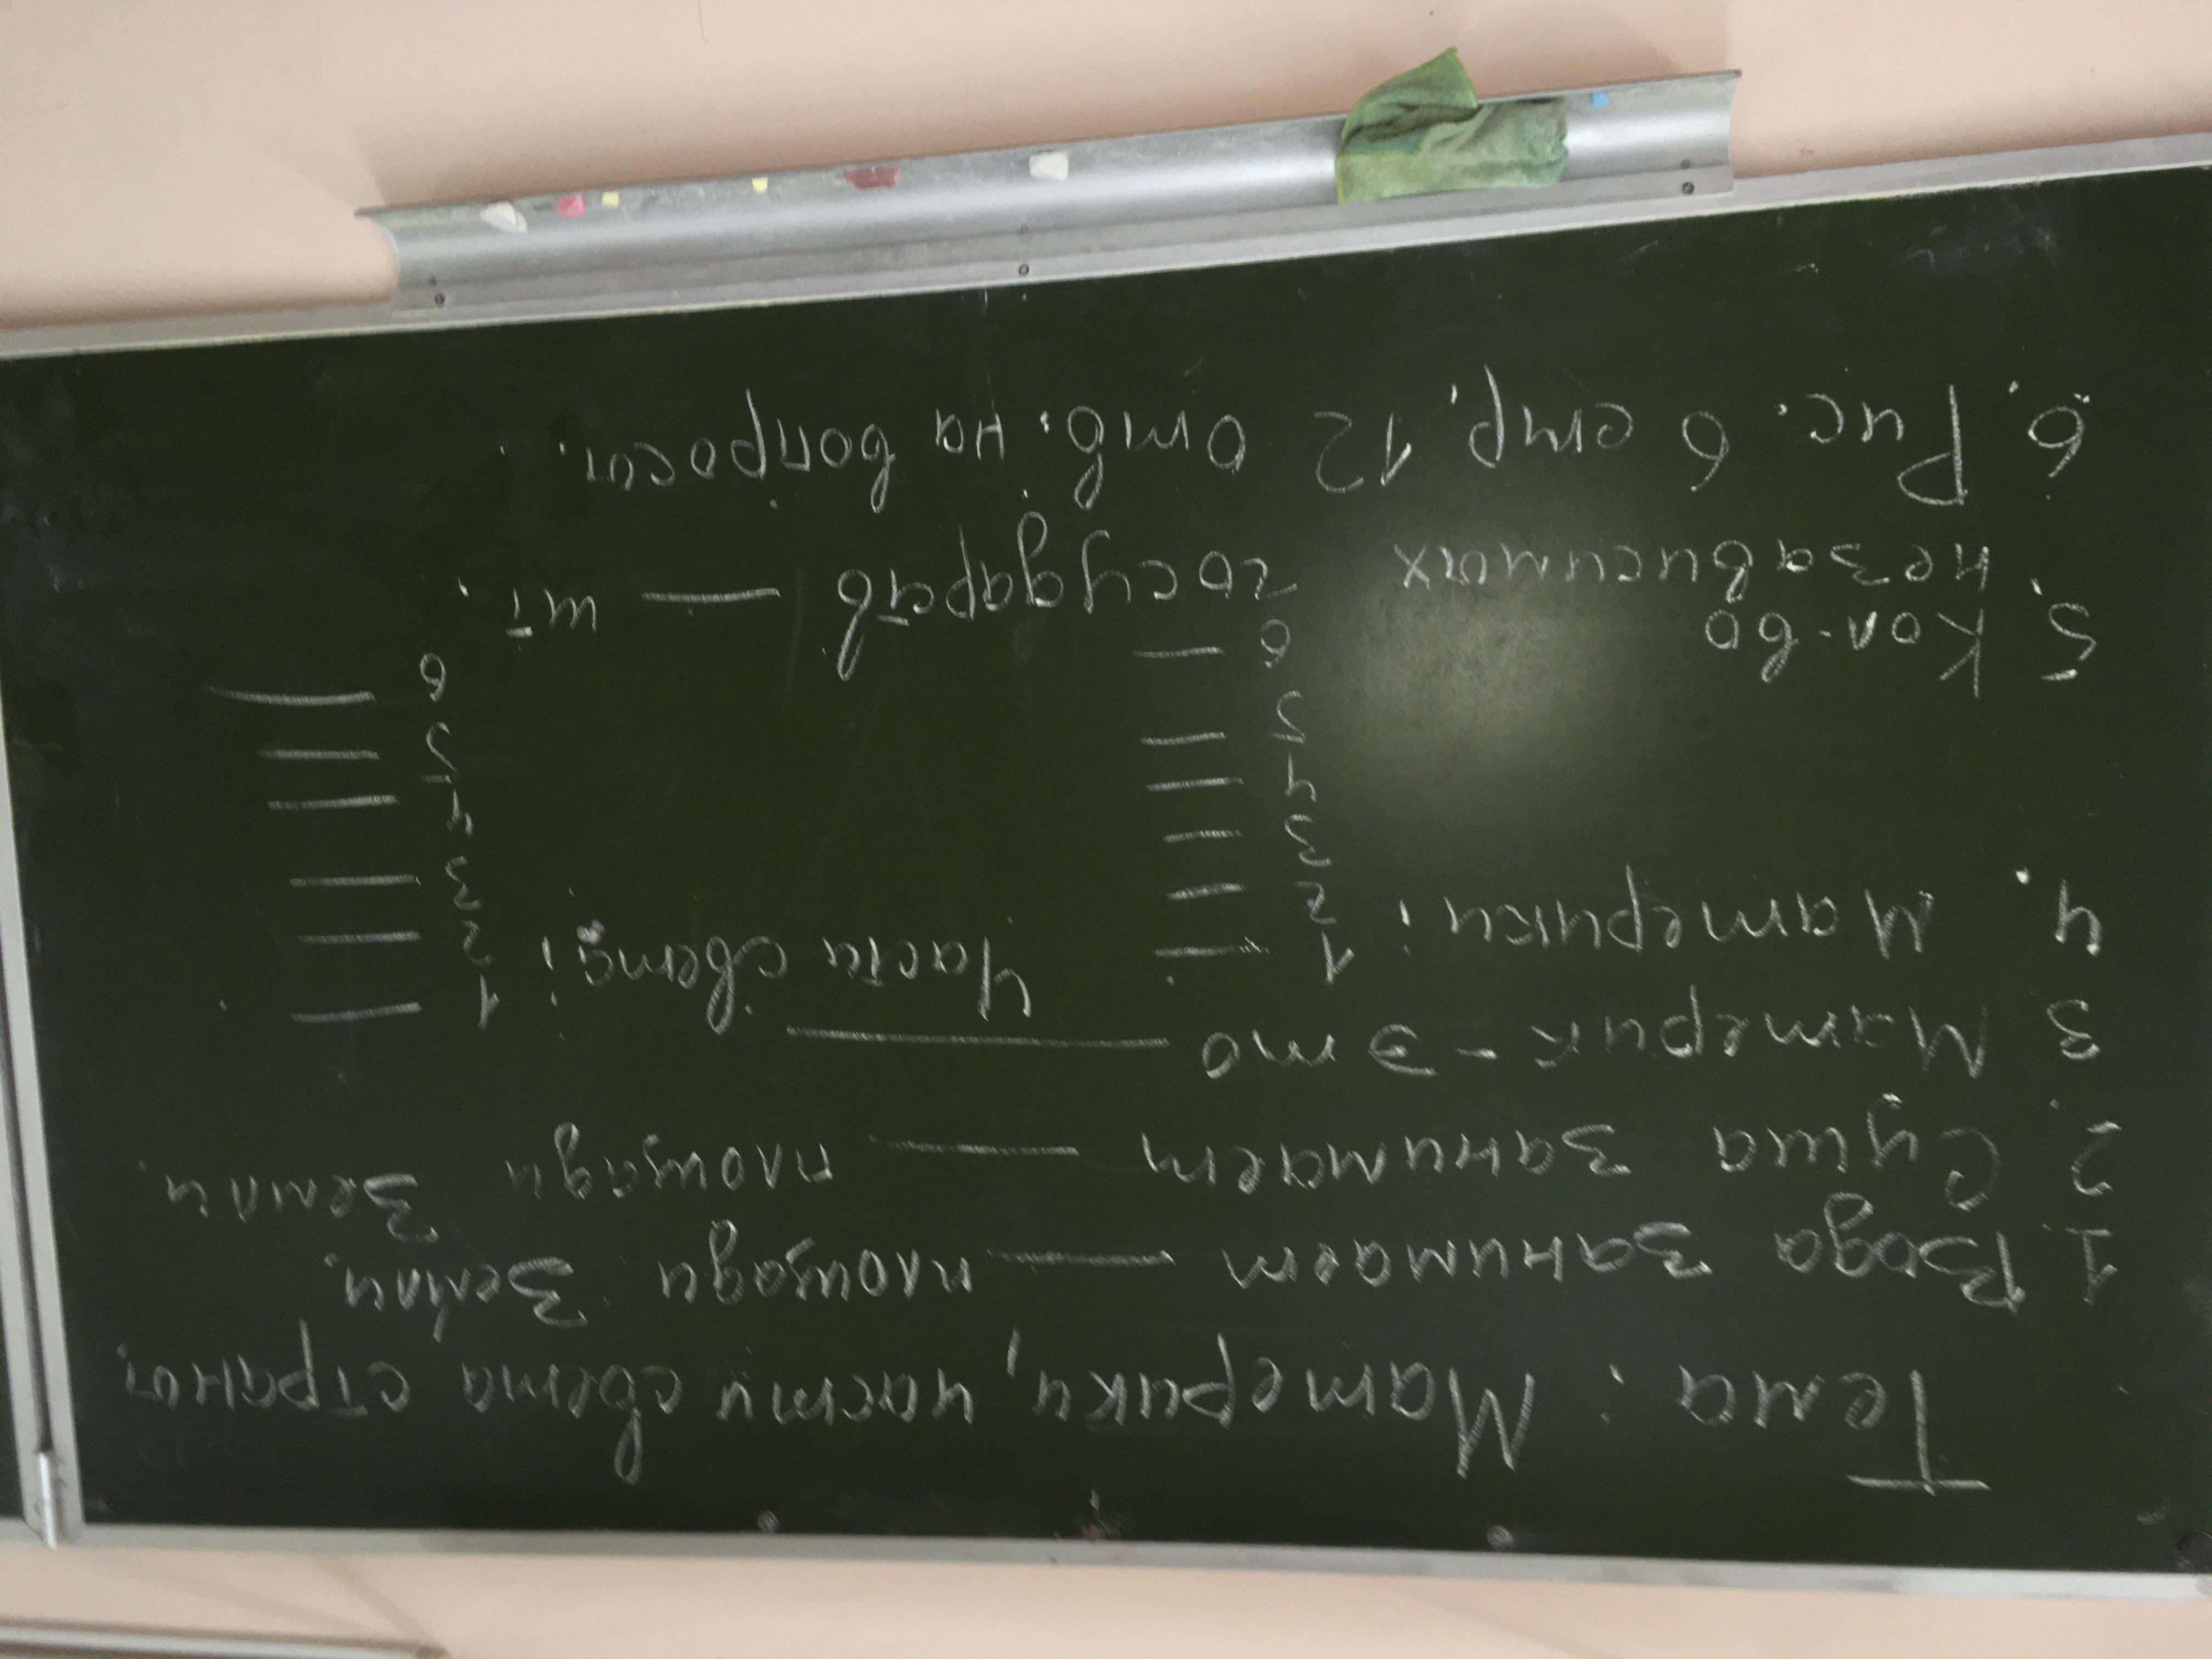 Тема: Материки, части света страны.
1. Вода занимает —— площади Земли.
2. Суша занимает —— площади Земли.
3. Материк - это ————
4. Материки: 1 — Части света: 1 —
2 — 2 —
3 — 3 —
4 — 4 —
5 — 5 —
6 — 6 —
5. Кол-во
независимых государств —— шт.
6. Рис. 6 стр. 12 отв. на вопросы.